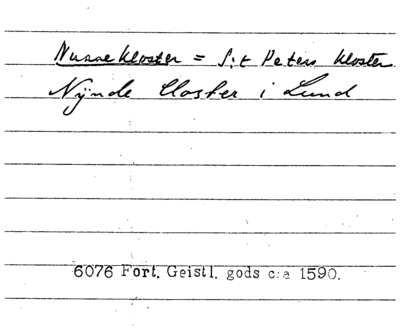 Nunnekloster = S:t Peters kloster
Nÿnde Closter i Lund
6076 Fört. Geistl. gods c:a 1590.